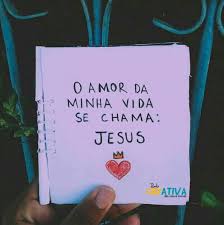 O AMOR DA
MINHA VIDA
SE CHAMA:
JESUS
ATIVA